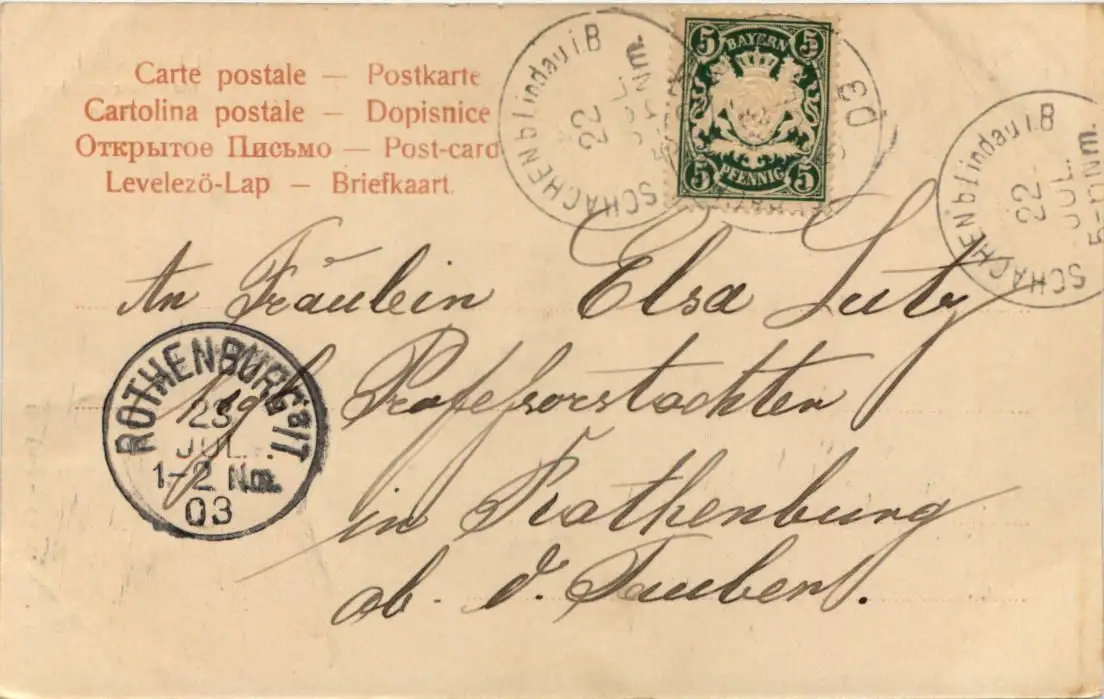 Carte postale — Postkarte
Cartolina postale — Dopisnice
Открытое Письмо — Post-card
Levelező-Lap — Briefkaart
SCHACHEN b/Lindau i.B
22
JUL.
Nm.
03
5 BAYERN 5
5 PFENNIG 5
SCHACHEN b/Lindau i.B
22
JUL.
5-6 Nm.
An Fräulein Elsa Lutz
Professorstochter
in Rothenburg
ob. d. Tauber.
ROTHENBURG a/T
23
JUL.
1-2 Nm.
03